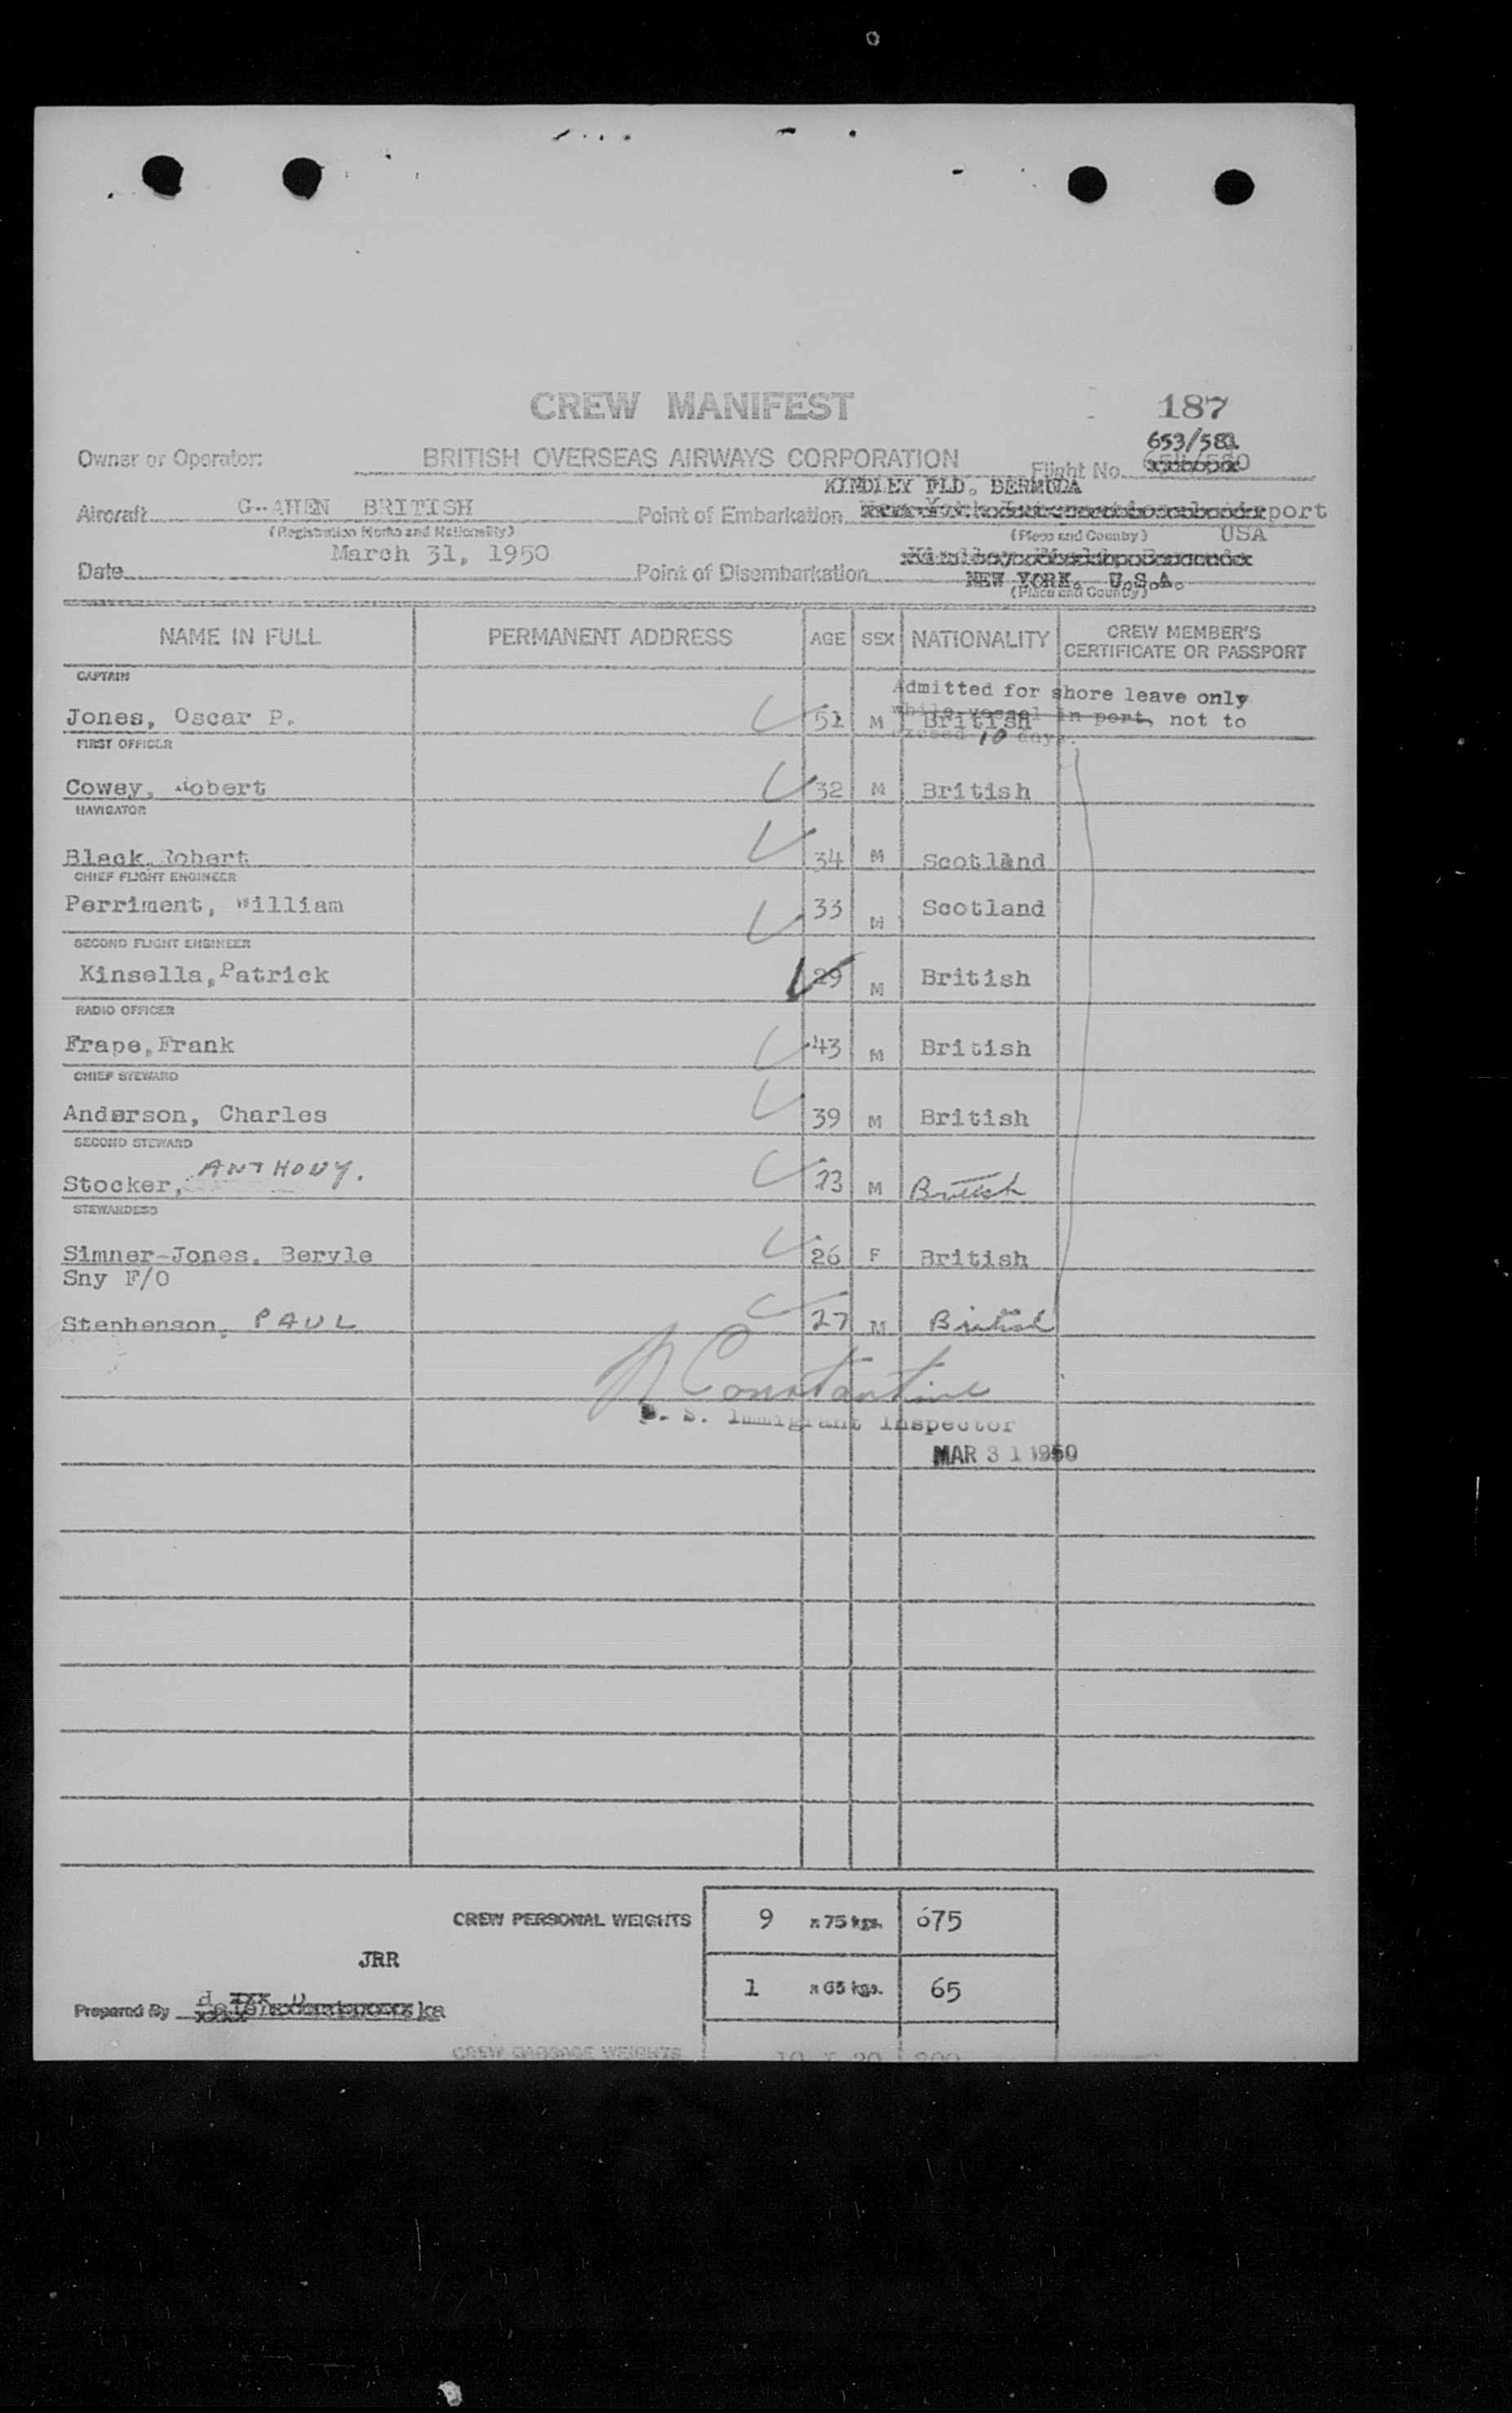 CREW MANIFEST
187
653/581
Owner or Operator: BRITISH OVERSEAS AIRWAYS CORPORATION Flight No.
KINDLEY FLD. BERMUDA
Aircraft G-AHEN BRITISH Point of Embarkation port
(Registration Marks and Nationality) (Place and Country) USA
Date March 31, 1950 Point of Disembarkation
NEW YORK. U.S.A.
(Place and Country)
NAME IN FULL PERMANENT ADDRESS AGE SEX NATIONALITY CREW MEMBER'S CERTIFICATE OR PASSPORT
CAPTAIN
Admitted for shore leave only
while vessel in port, not to
exceed 10 days.
Jones, Oscar P. 51 M British
FIRST OFFICER
Cowey, Robert 32 M British
NAVIGATOR
Black, Robert 34 M Scotland
CHIEF FLIGHT ENGINEER
Perriment, William 33 M Scotland
SECOND FLIGHT ENGINEER
Kinsella, Patrick 29 M British
RADIO OFFICER
Frape, Frank 43 M British
CHIEF STEWARD
Anderson, Charles 39 M British
SECOND STEWARD
Stocker, ANTHONY. 23 M British
STEWARDESS
Simner-Jones, Beryle 26 F British
Sny F/O
Stephenson, PAUL 27 M British
Constantine
U. S. Immigrant Inspector
MAR 31 1950
CREW PERSONAL WEIGHTS 9 x 75 kgs. 675
JRR
1 x 65 kgs. 65
Prepared By
CREW BAGGAGE WEIGHTS 10 X 20 200